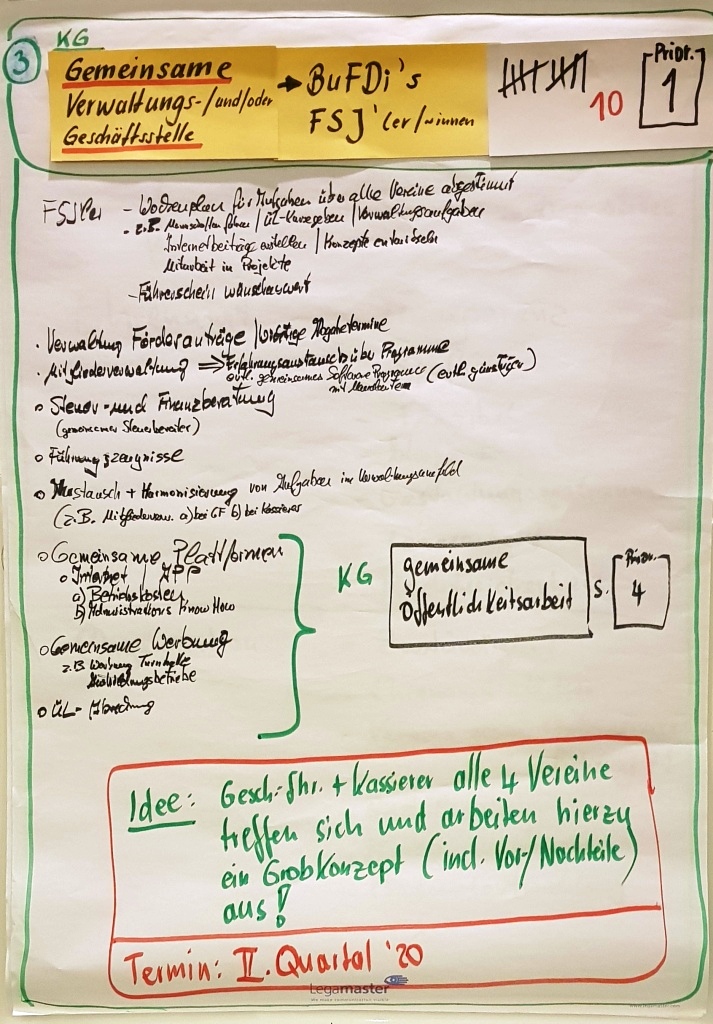 3
KG
Gemeinsame
Verwaltungs-/und/oder
Geschäftsstelle
→ BuFDi's
FSJ'ler/~innen
10
Prior.
1
- Wochenplan für Aufgaben über alle Vereine abgestimmt
- z.B. Mannschaften führen / ÜL-Kurzgeben / Verwaltungsaufgaben
Internetbeiträge erstellen / Konzepte entwickeln
Mitarbeit in Projekte
- Führerschein wünschenswert
· Verwaltung Förderanträge / wichtige Abgabetermine
· Mitgliederverwaltung ⇒ Erfahrungsaustausch über Programme
evtl. gemeinsames Software Programm (evtl. günstiger)
mit
o Steuer- und Finanzberatung
(gemeinsamer Steuerberater)
o Führungszeugnisse
o Austausch + Harmonisierung von Aufgaben im Verwaltungsumfeld
(z.B. Mitgliederverw. a) bei GF b) bei Kassierer
o Gemeinsame Plattformen
o Internet / APP
a) Betriebskosten
b) Administrations Know How
o Gemeinsame Werbung
z.B Werbung Turnhalle
o ÜL-
KG
gemeinsame
Öffentlichkeitsarbeit
s.
Prior.
4
Idee: Gesch.-Fhr. + Kassierer alle 4 Vereine
treffen sich und arbeiten hierzu
ein Grobkonzept (incl. Vor-/Nachteile)
aus!
Termin: II. Quartal '20
Legamaster